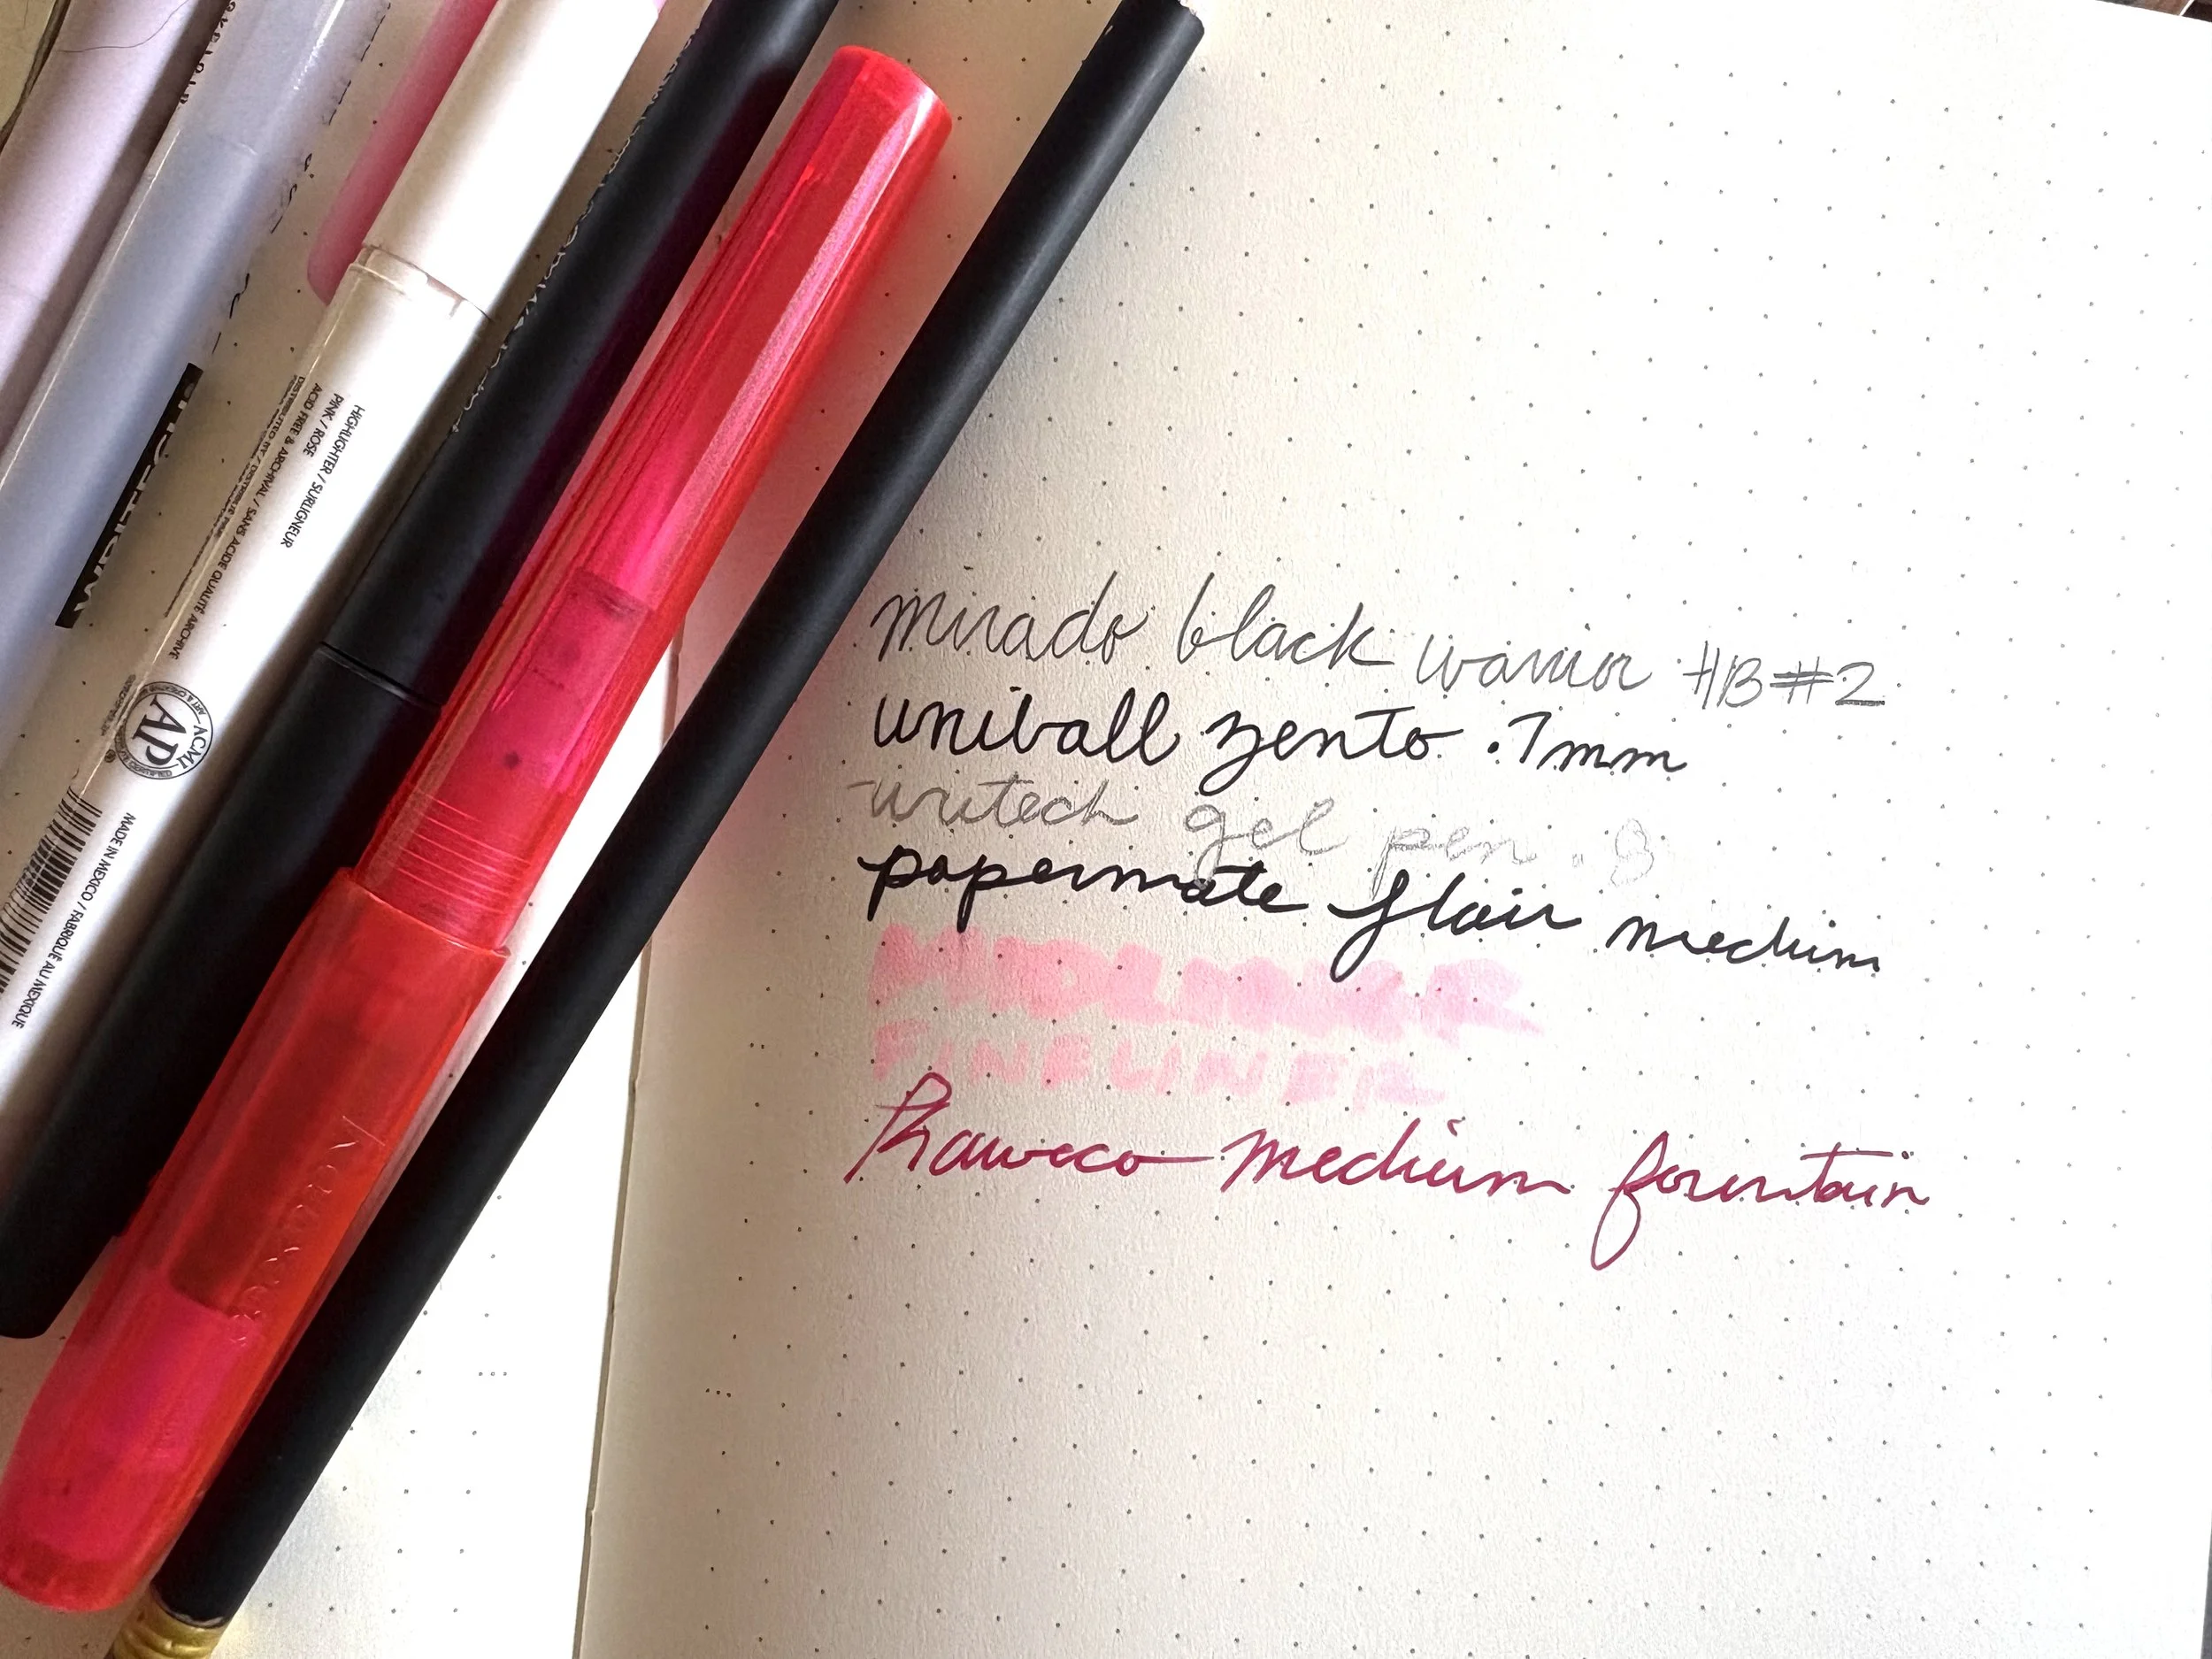 mirado black warrior HB #2
uniball zento .7mm
writech gel pen .8
papermate flair medium
MIDLINER
FINELINER
Kaweco medium fountain
Kaweco
HIGHLIGHTER / SURLIGNEUR
PINK / ROSE
ACID FREE & ARCHIVAL / SANS ACIDE QUALITÉ ARCHIVE
ACMI
AP
CERTIFIED
MADE IN MEXICO / FABRIQUÉ AU MEXIQUE